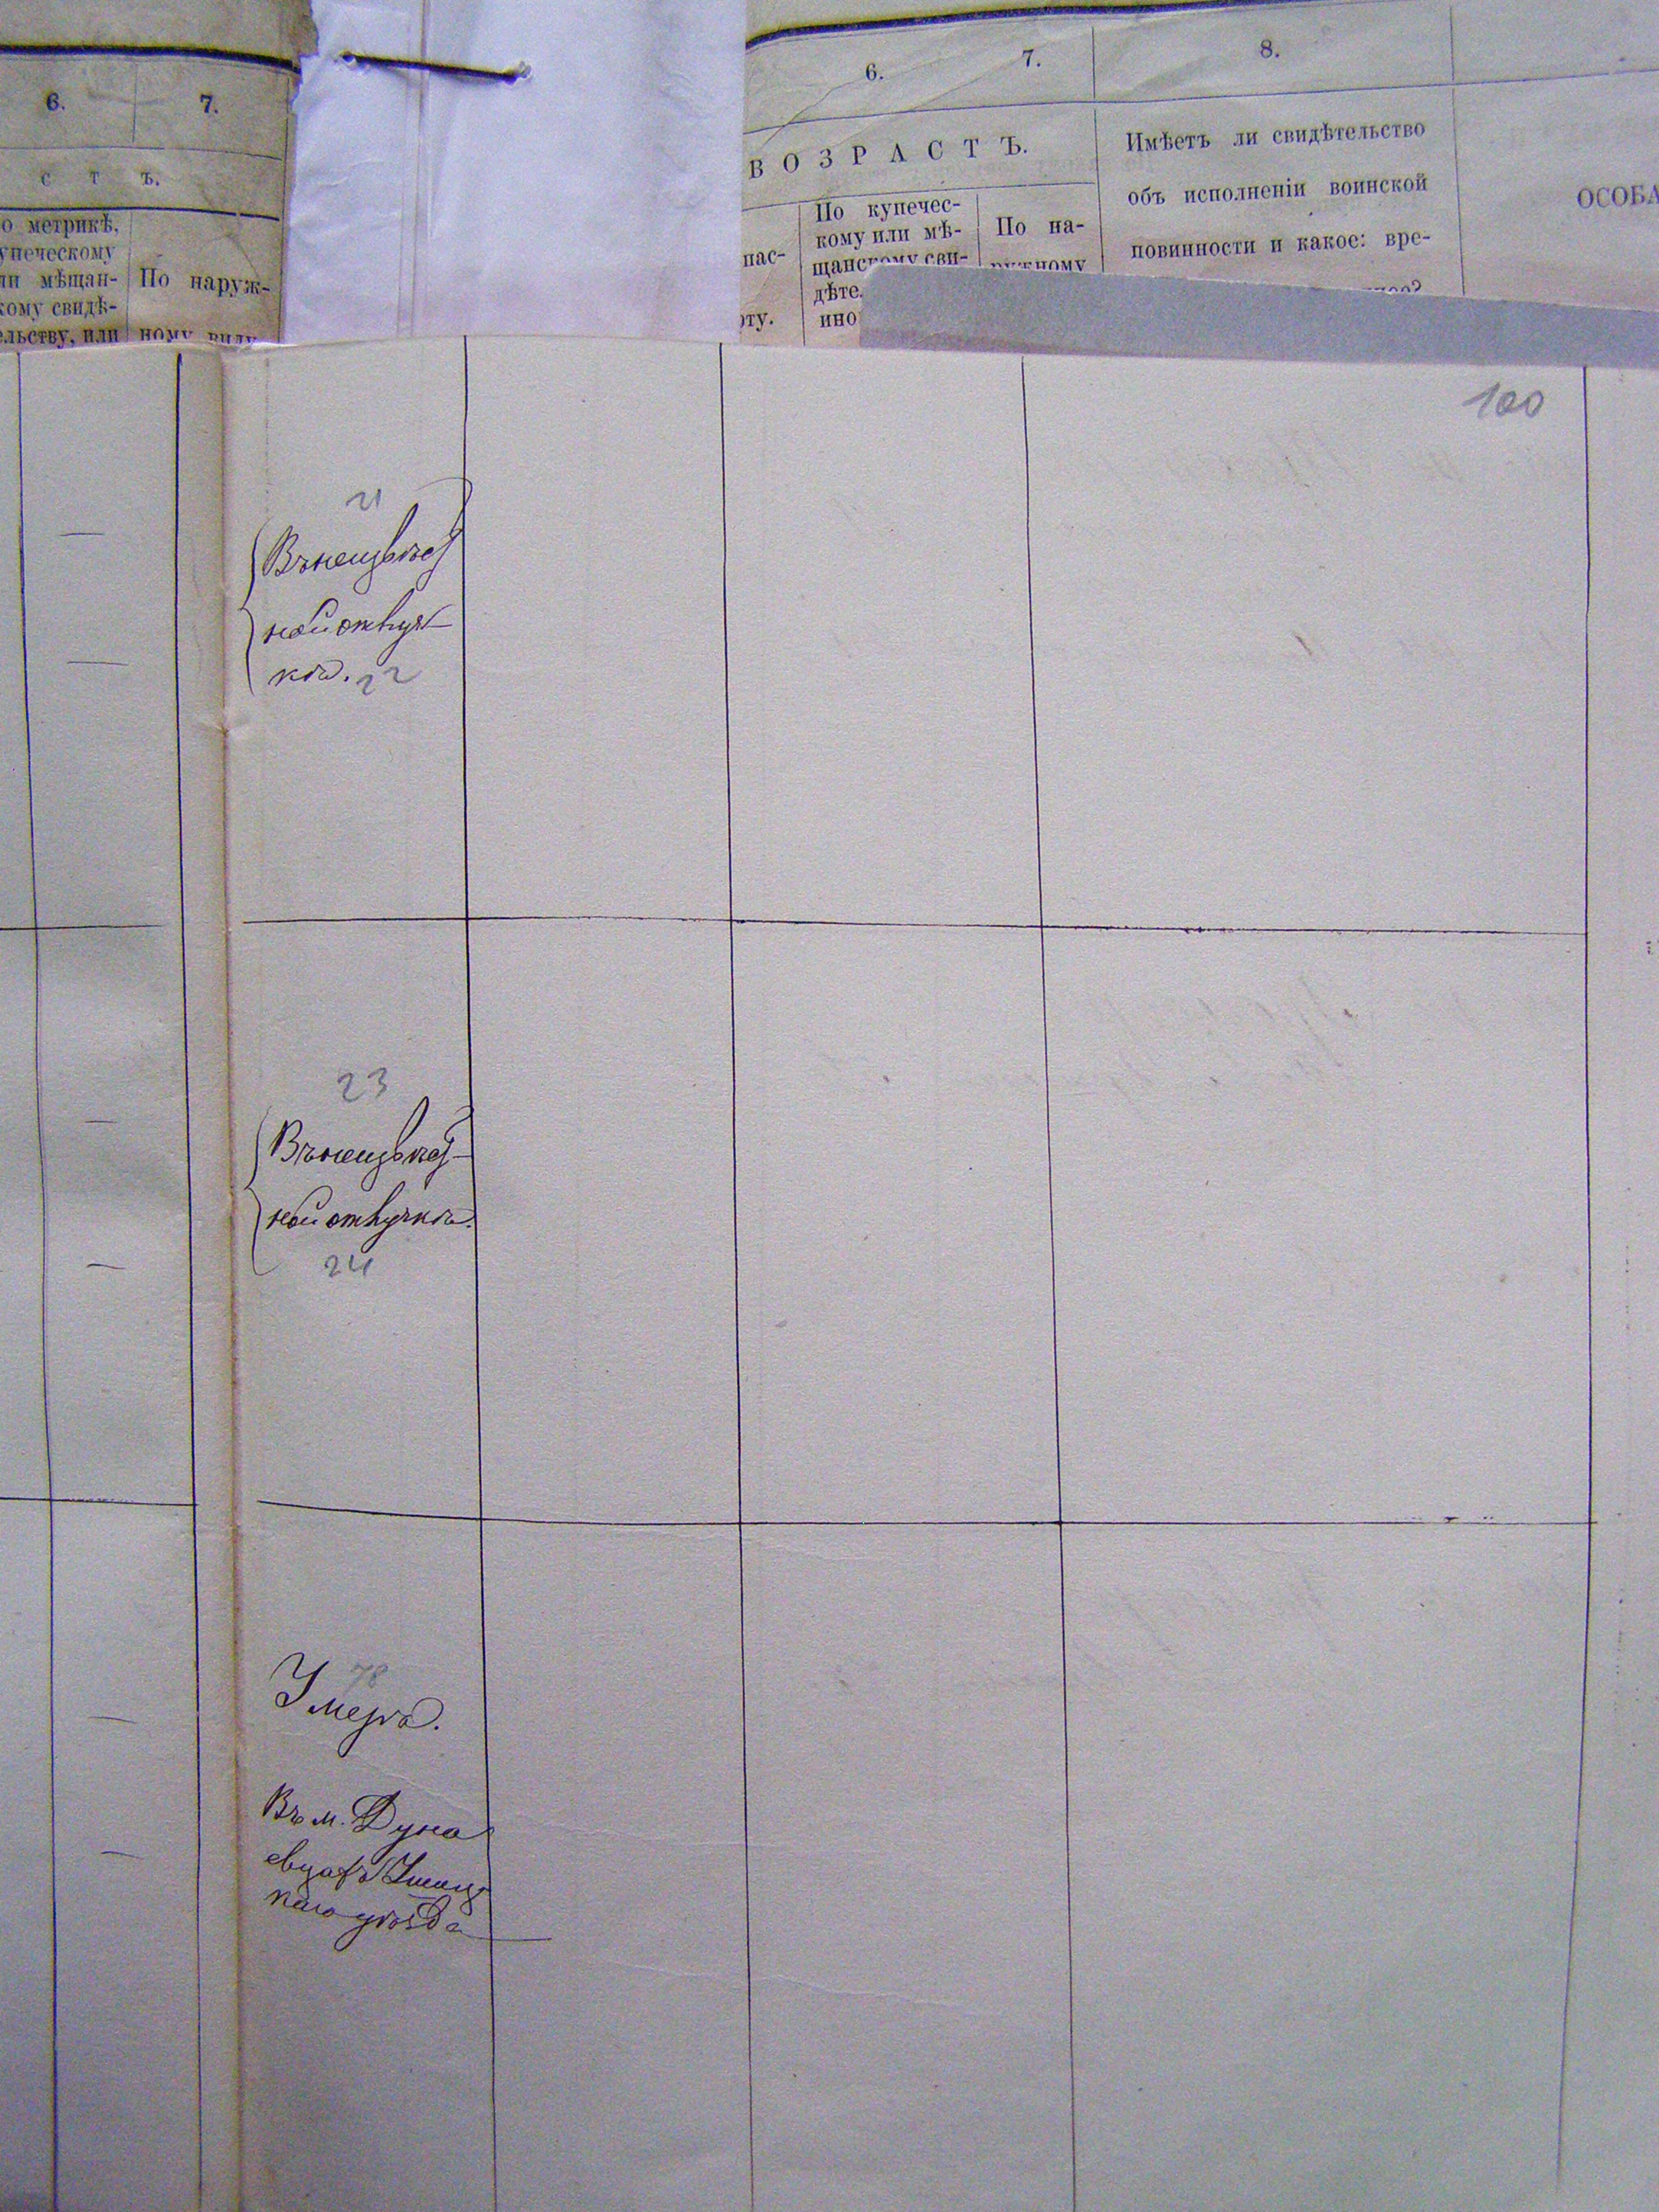 6. 7.
с т ъ.
о метрикѣ,
упеческому
ли мѣщан-
кому свидѣ-
ельству, или
По наруж-
ному виду
6. 7. 8.
ВОЗРАСТЪ.
пас-
рту.
По купечес-
кому или мѣ-
щанскому сви-
дѣте
ино
По на-
ружному
Имѣетъ ли свидѣтельство
объ исполненіи воинской
повинности и какое: вре-
ОСОБА
100
21
Въ
ной отлуч
кѣ. 22
23
Въ
ной отлучкѣ.
24
78
Умеръ.
Въ м. Дуна
евцахъ Ушиц
каго уѣзда